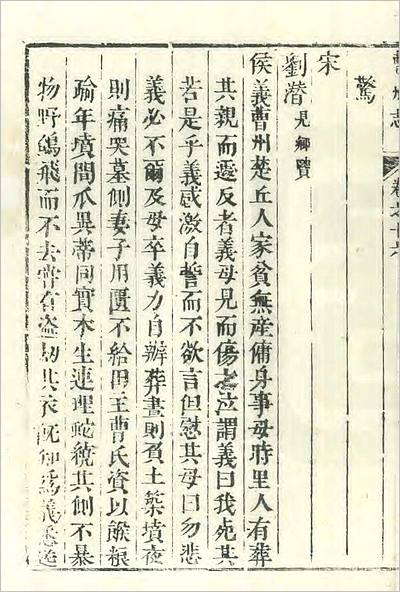 曹州志 卷之十六
驚
宋
劉潛見鄉賢
侯義曹州楚丘人家貧無產傭身事母時里人有葬
其親而遽反者義母見而傷之泣謂義曰我死其
若是乎義感激自誓而不欲言但慰其母曰勿悲
義必不爾及母卒義力自辦葬晝則負土築墳夜
則痛哭墓側妻子用匱不給田主曹氏資以餱粮
踰年墳間瓜異蒂同實木生連理蛇繞其側不暴
物野鴿飛而不去嘗有盜刼其衣旣知為義悉還